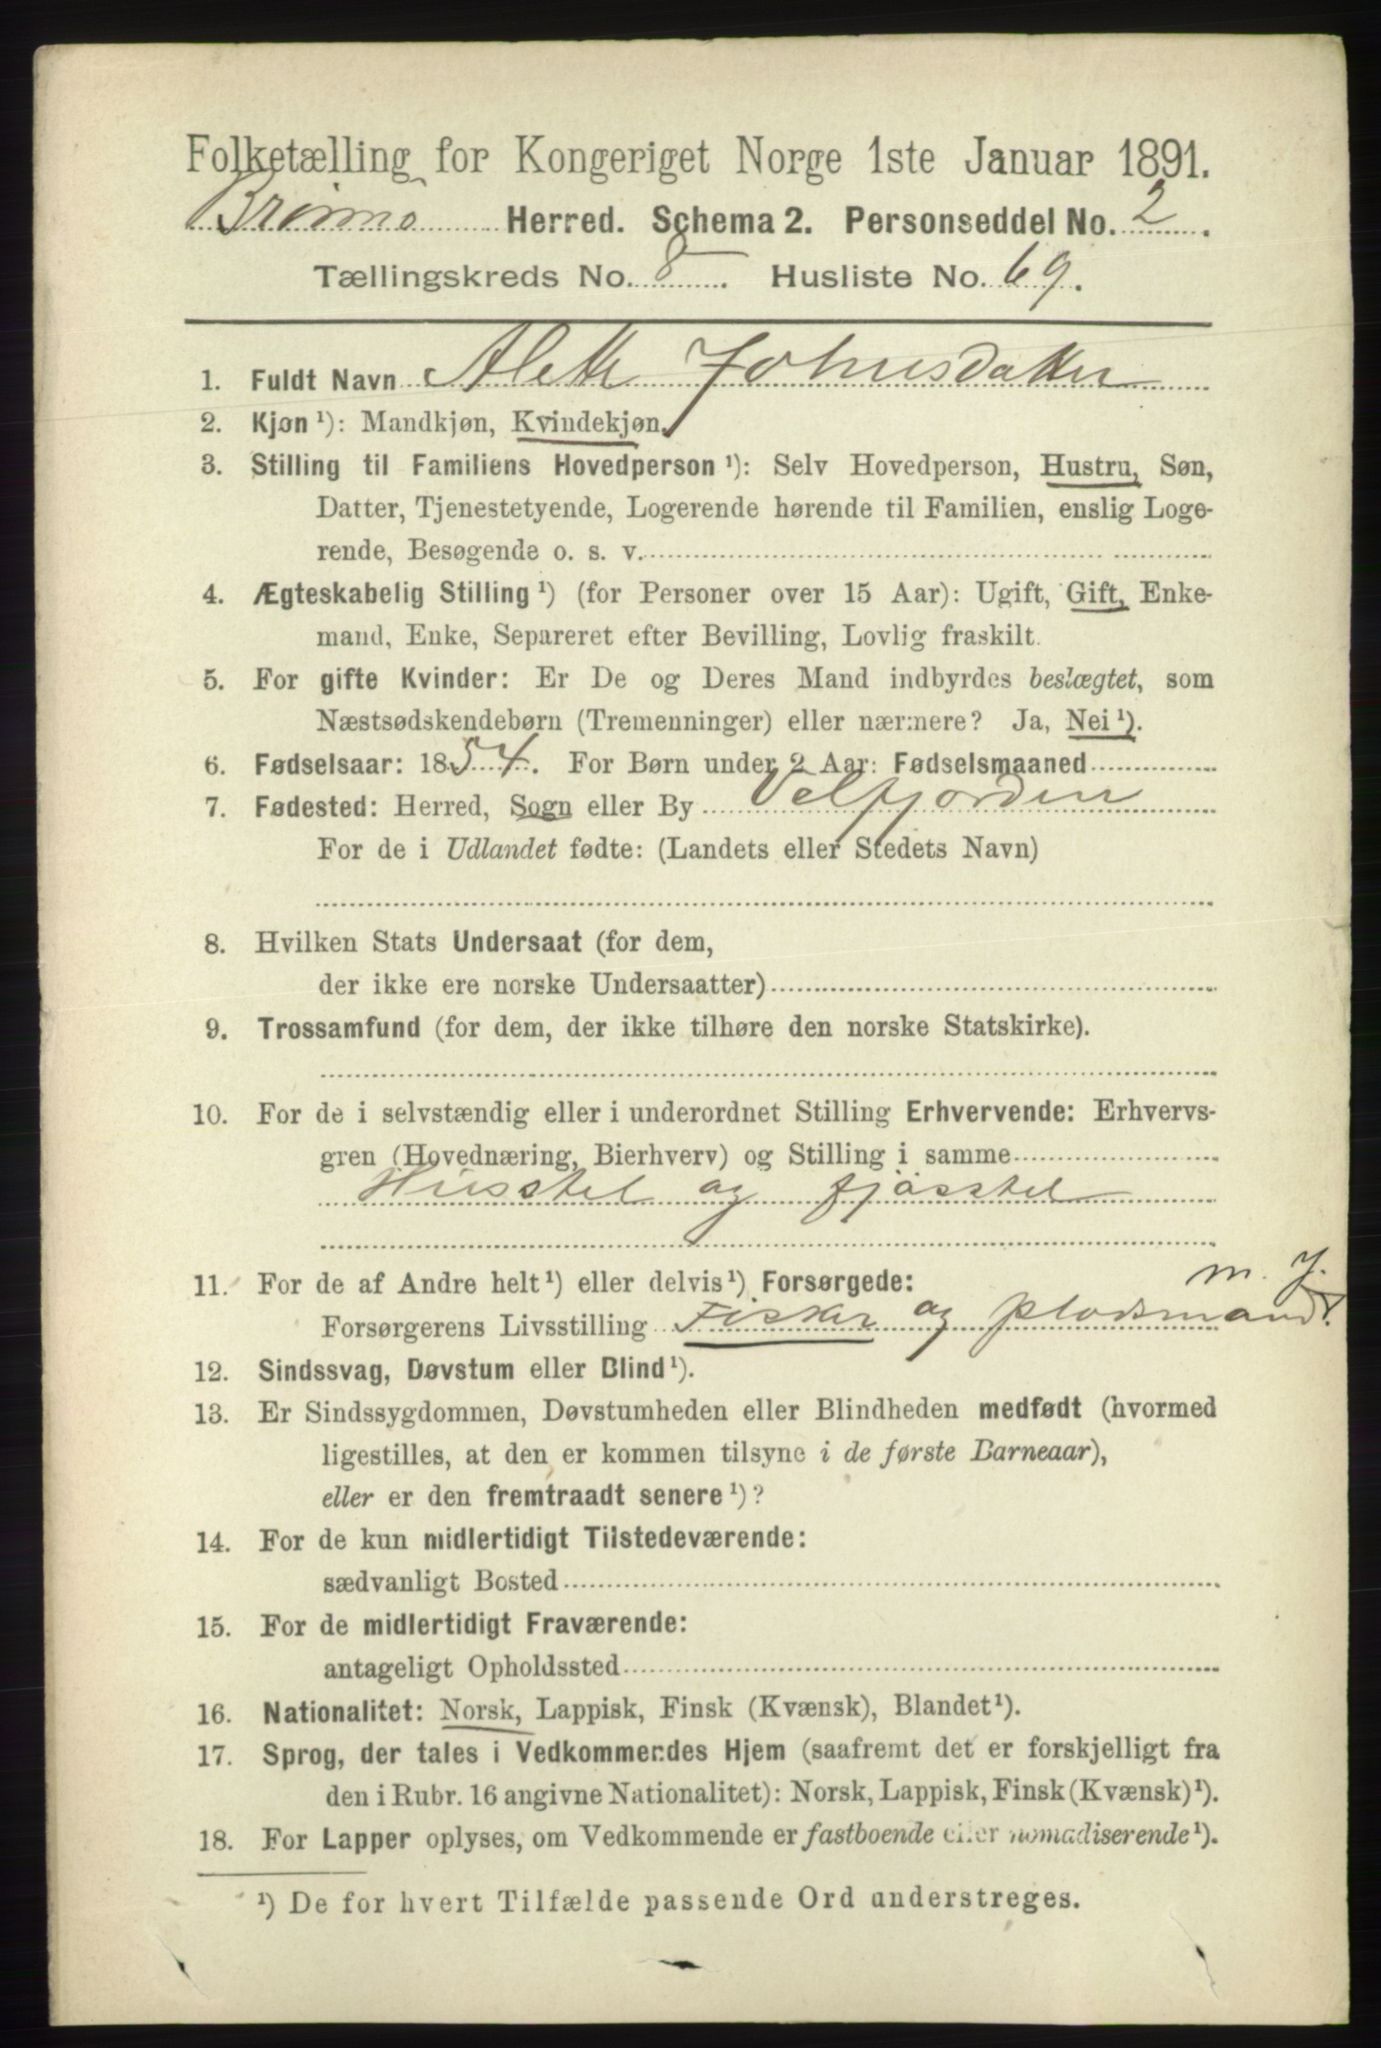 Folketælling for Kongeriget Norge 1ste Januar 1891.
Brønnø Herred. Schema 2. Personseddel No. 2.
Tællingskreds No. 8. Husliste No. 69.
1. Fuldt Navn Alette Johnsdatter
2. Kjøn ¹): Mandkjøn, Kvindekjøn.
3. Stilling til Familiens Hovedperson ¹): Selv Hovedperson, Hustru, Søn,
Datter, Tjenestetyende, Logerende hørende til Familien, enslig Loge-
rende, Besøgende o. s. v.
4. Ægteskabelig Stilling ¹) (for Personer over 15 Aar): Ugift, Gift, Enke-
mand, Enke, Separeret efter Bevilling, Lovlig fraskilt.
5. For gifte Kvinder: Er De og Deres Mand indbyrdes beslægtet, som
Næstsødskendebørn (Tremenninger) eller nærmere? Ja, Nei ¹).
6. Fødselsaar: 1854. For Børn under 2 Aar: Fødselsmaaned
7. Fødested: Herred, Sogn eller By Velfjorden
For de i Udlandet fødte: (Landets eller Stedets Navn)
8. Hvilken Stats Undersaat (for dem,
der ikke ere norske Undersaatter)
9. Trossamfund (for dem, der ikke tilhøre den norske Statskirke).
10. For de i selvstændig eller i underordnet Stilling Erhvervende: Erhvervs-
gren (Hovednæring, Bierhverv) og Stilling i samme
Husstel og fjøsstel
11. For de af Andre helt ¹) eller delvis ¹) Forsørgede:
m. J.
Forsørgerens Livsstilling Fisker og pladsmand
12. Sindssvag, Døvstum eller Blind ¹).
13. Er Sindssygdommen, Døvstumheden eller Blindheden medfødt (hvormed
ligestilles, at den er kommen tilsyne i de første Barneaar),
eller er den fremtraadt senere ¹)?
14. For de kun midlertidigt Tilstedeværende:
sædvanligt Bosted
15. For de midlertidigt Fraværende:
antageligt Opholdssted
16. Nationalitet: Norsk, Lappisk, Finsk (Kvænsk), Blandet ¹).
17. Sprog, der tales i Vedkommendes Hjem (saafremt det er forskjelligt fra
den i Rubr. 16 angivne Nationalitet): Norsk, Lappisk, Finsk (Kvænsk) ¹).
18. For Lapper oplyses, om Vedkommende er fastboende eller nomadiserende ¹).
¹) De for hvert Tilfælde passende Ord understreges.